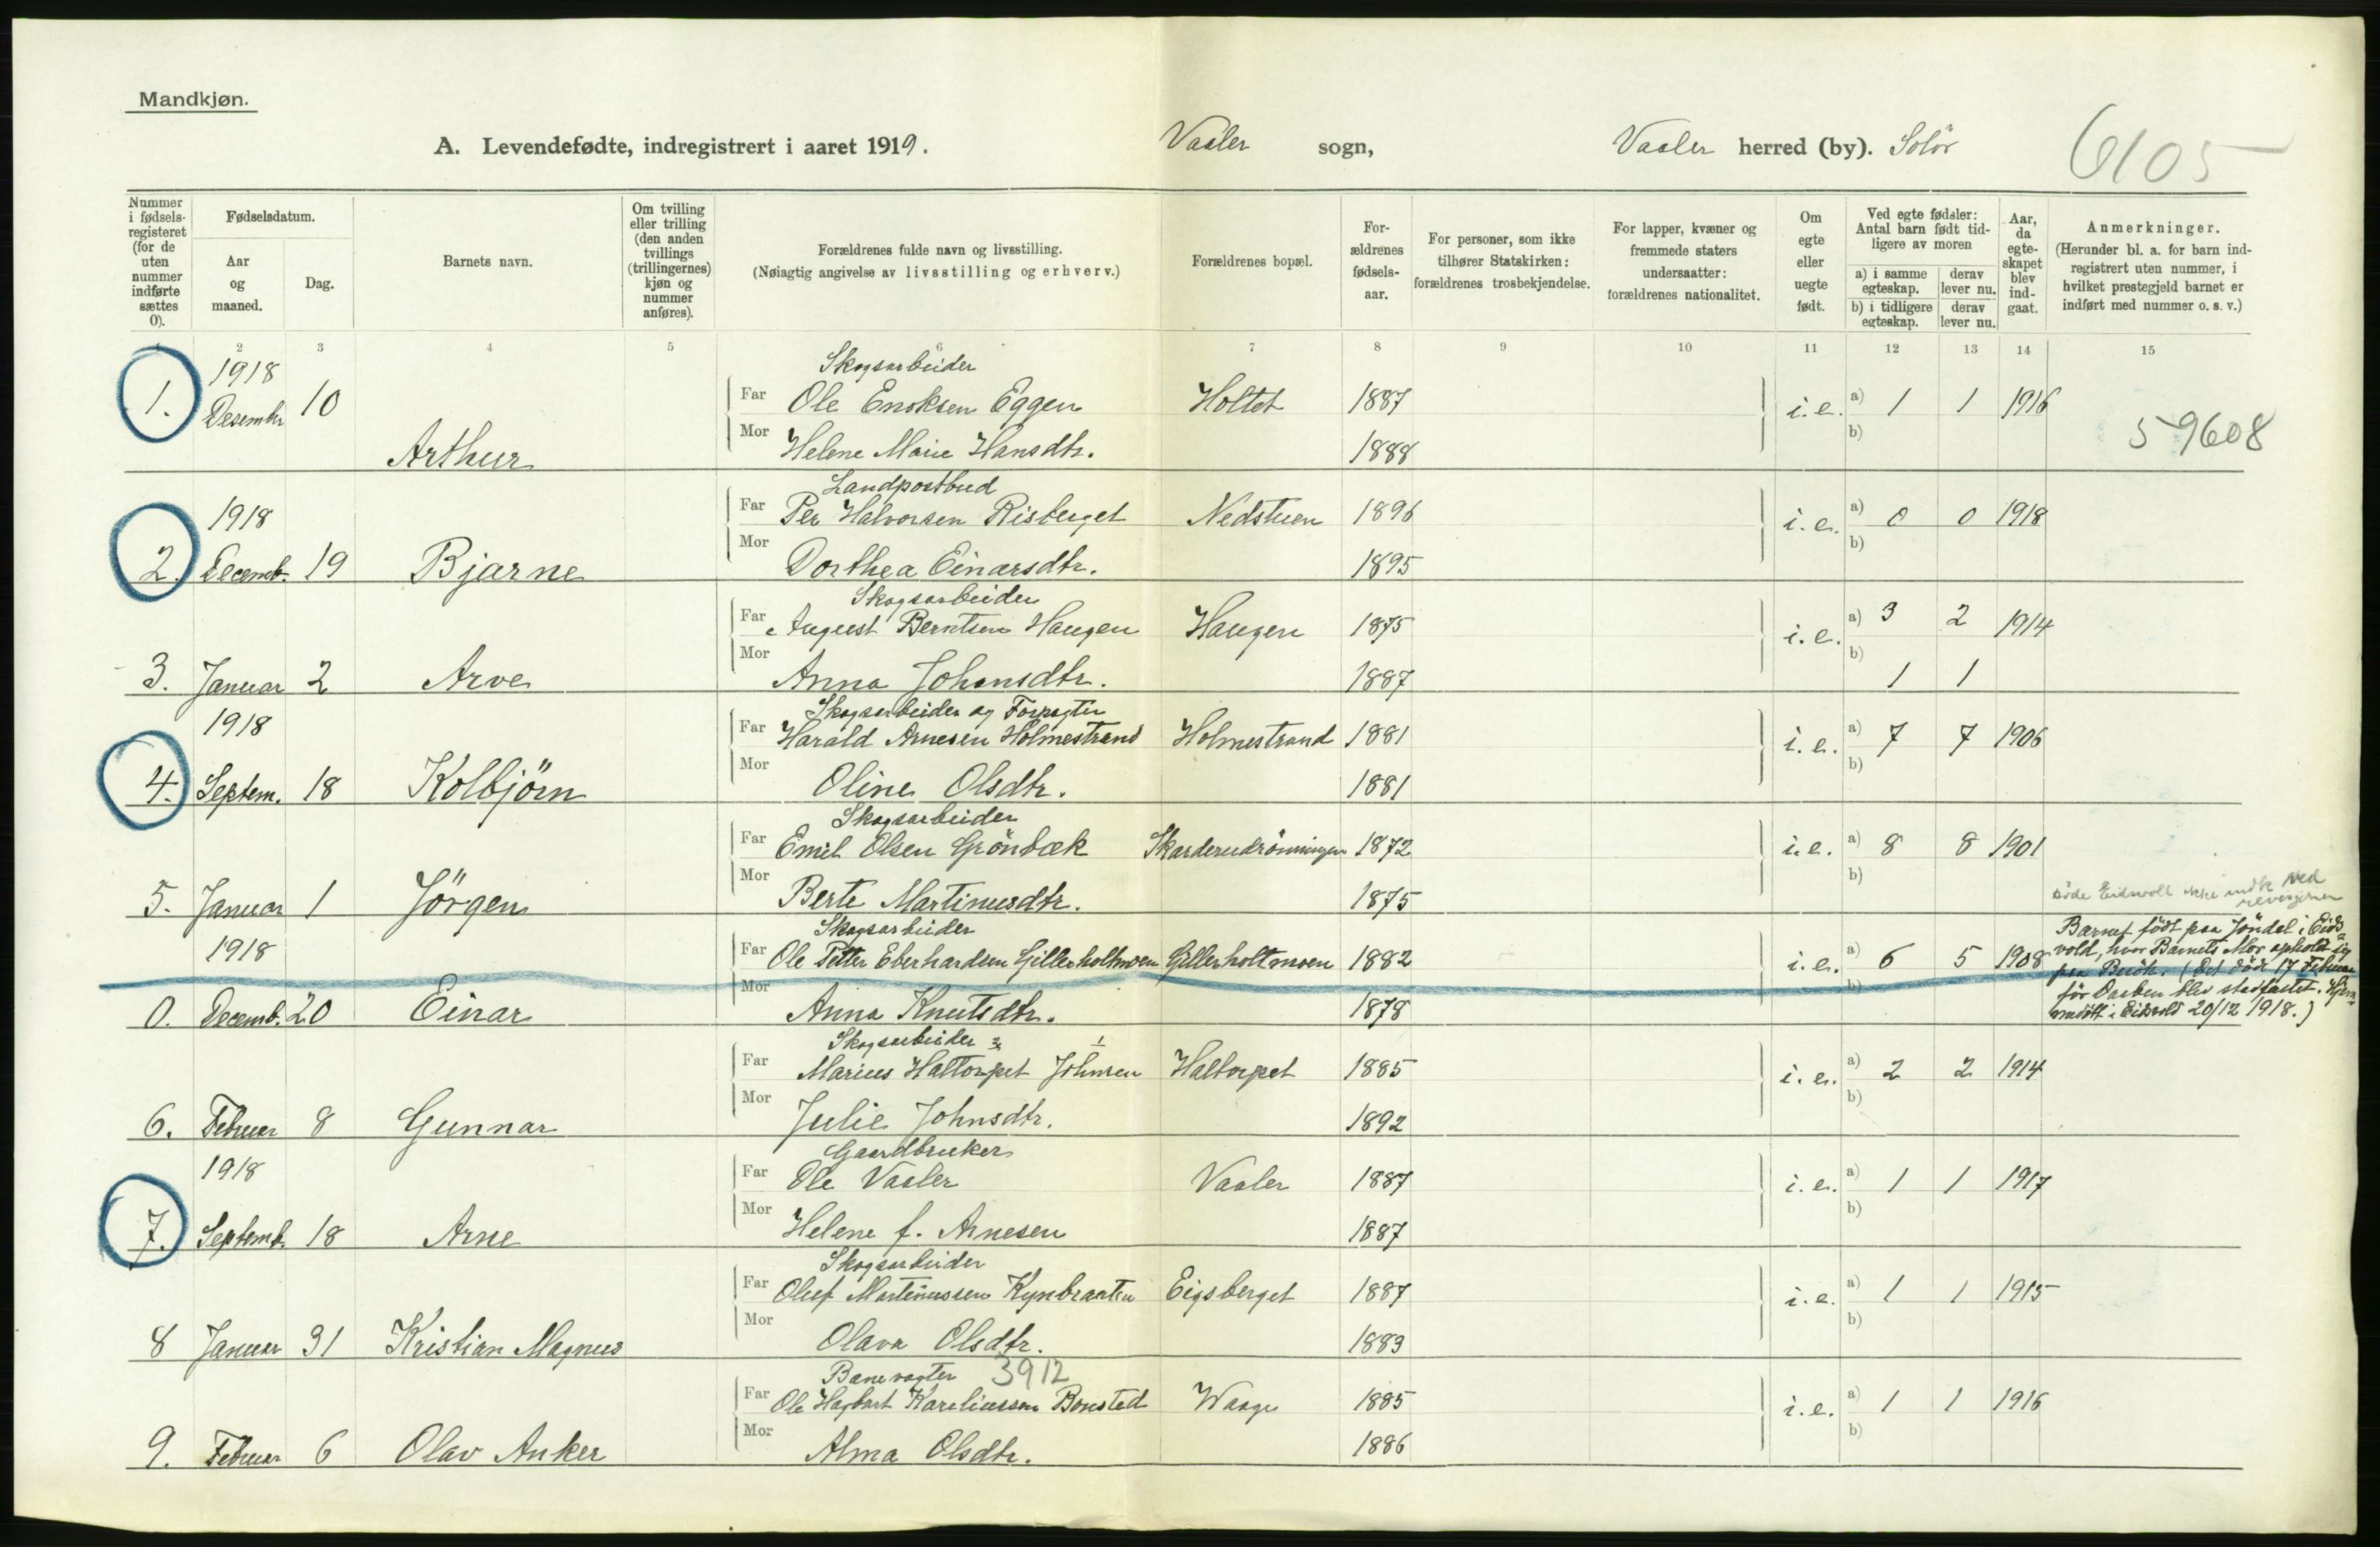 Mandkjøn.
A. Levendefødte, indregistrert i aaret 1919. Vaaler sogn, Vaaler herred (by). Solör 6105
Nummer i fødsels-registeret (for de uten nummer indførte sættes 0).
Fødselsdatum.
Aar og maaned.
Dag.
Barnets navn.
Om tvilling eller trilling (den anden tvillings (trillingernes) kjøn og nummer anføres).
Forældrenes fulde navn og livsstilling.
(Nøiagtig angivelse av livsstilling og erhverv.)
Forældrenes bopæl.
For-ældrenes fødsels-aar.
For personer, som ikke tilhører Statskirken: forældrenes trosbekjendelse.
For lapper, kvæner og fremmede staters undersaatter: forældrenes nationalitet.
Om egte eller uegte født.
Ved egte fødsler: Antal barn født tid-ligere av moren
a) i samme egteskap. derav lever nu.
b) i tidligere egteskap. derav lever nu.
Aar, da egte-skapet blev ind-gaat.
Anmerkninger.
(Herunder bl. a. for barn ind-registrert uten nummer, i hvilket prestegjeld barnet er indført med nummer o. s. v.)
1 2 3 4 5 6 7 8 9 10 11 12 13 14 15
1918 Skogsarbeider
1. Desembr 10 Far Ole Enoksen Eggen Holtet 1887 i.e. a) 1 1 1916
Arthur Mor Helene Marie Hansdtr. 1888 b) 59608
Landpostbud
1918 Far Per Halvorsen Risberget Nedstuen 1896 i.e. a) 0 0 1918
2. Decemb. 19 Bjarne Mor Dorthea Einarsdtr. 1895 b)
Skogsarbeider
Far August Berntsen Haugen Haugen 1875 i.e. a) 3 2 1914
3. Januar 2 Arve Mor Anna Johansdtr. 1887 b) 1 1
Skogsarbeider og Forpagter
1918 Far Harald Arnesen Holmestrand Holmestrand 1881 i.e. a) 7 7 1906
4. Septem. 18 Kolbjörn Mor Oline Olsdtr. 1881 b)
Skogsarbeider
Far Emil Olsen Grönbæk Skarderudrönningen 1872 i.e. a) 8 8 1901
5. Januar 1 Jörgen Mor Berte Martinusdtr. 1875 b)
Skogsarbeider
1918 Far Ole Petter Eberhardsen Gillerholtmoen Gillerholtmoen 1882 i.e. a) 6 5 1908
0. Decemb. 20 Einar Mor Anna Knutsdtr. 1878 b)
Barnet födt paa Jöndal i Eids-
vold, hvor Barnets Mor opholdt sig
paa Besök. (Det döde 17 Februar
för Daaben blev stadfæstet. Hjem-
medöbt i Eidsvold 20/12 1918.)
Skogsarbeider
Far Marius Haltorpet Johnsen Haltorpet 1885 i.e. a) 2 2 1914
6. Februar 8 Gunnar Mor Julie Johnsdtr. 1892 b)
Gaardbruker
1918 Far Ole Vaaler Vaaler 1887 i.e. a) 1 1 1917
7. Septemb. 18 Arne Mor Helene f. Arnesen 1887 b)
Skogsarbeider
Far Oluf Martinussen Kynbraaten Eigsberget 1887 i.e. a) 1 1 1915
8 Januar 31 Kristian Magnus Mor Olava Olsdtr. 1883 b)
Banevogter 3912
Far Ole Hagbart Kareliussen Bonsted Waage 1885 i.e. a) 1 1 1916
9. Februar 6 Olav Anker Mor Alma Olsdtr. 1886 b)